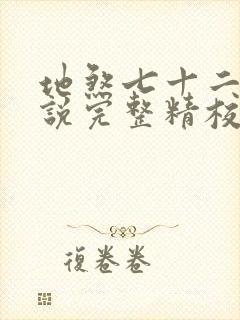 地煞七十二
說完整精校
復卷卷